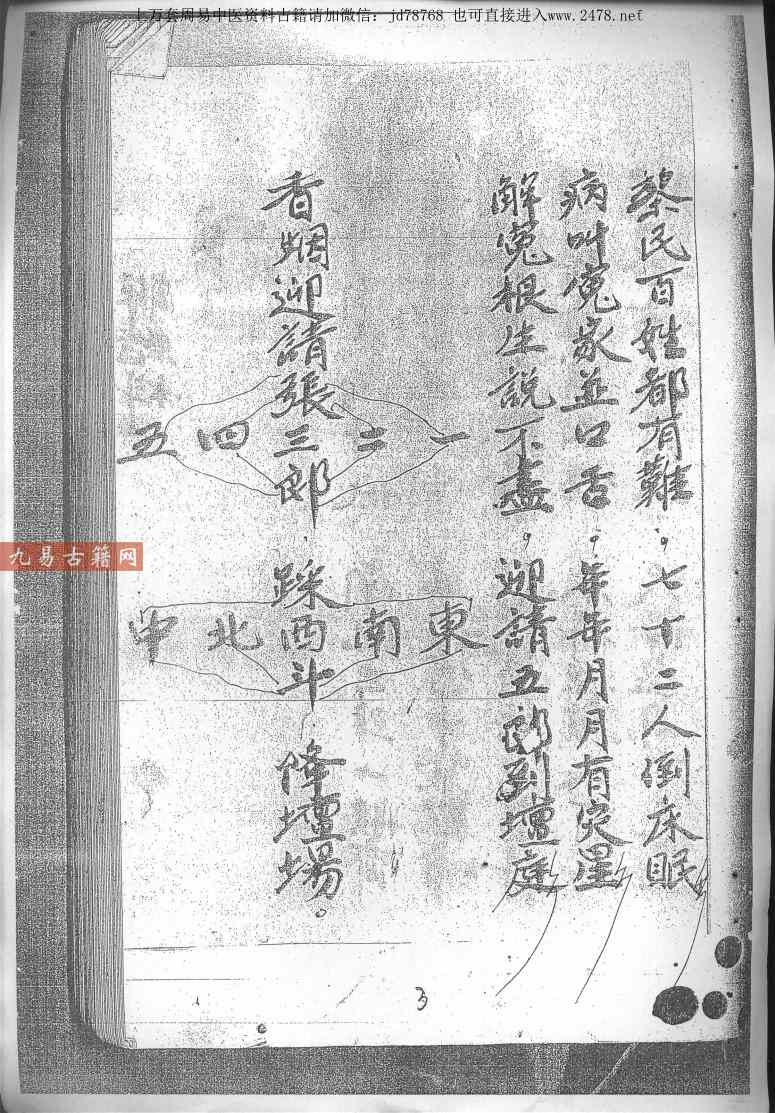 十万套周易中医资料古籍请加微信：jd78768 也可直接进入www.2478.net
黎民百姓都有難。七十二人倒床眠
病叫寃家並口舌。年年月月有灾星
解寃根生說不盡。迎請五郎到壇庭
一 東
二 南
香烟迎請張三郎 踩西斗 降壇場。
四 北
五 中
九易古籍网
3